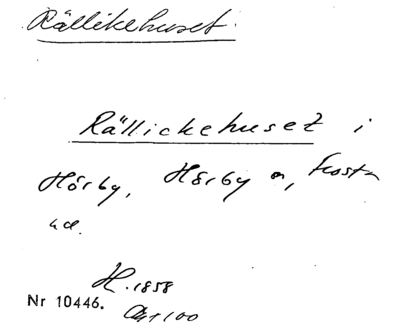 Rällikehuset.
Rällickehuset i
Hörby, Hörby sn, Frosta
hd.
H. 1858
Nr 10446.
1:100